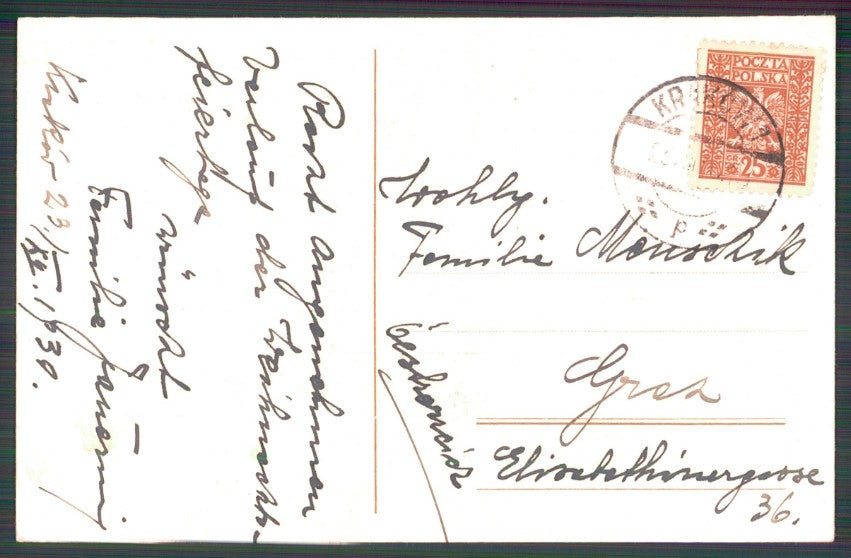 Recht angenehmen
Verlauf der Weihnachts-
feiertage
wünscht
Familie
Krakó 23./XII. 1930.
POCZTA
POLSKA
GR. 25
KRAKÓW 1
p
Wohlg.
Familie Menschik
Graz
Österreich
Elisabethinergasse
36.